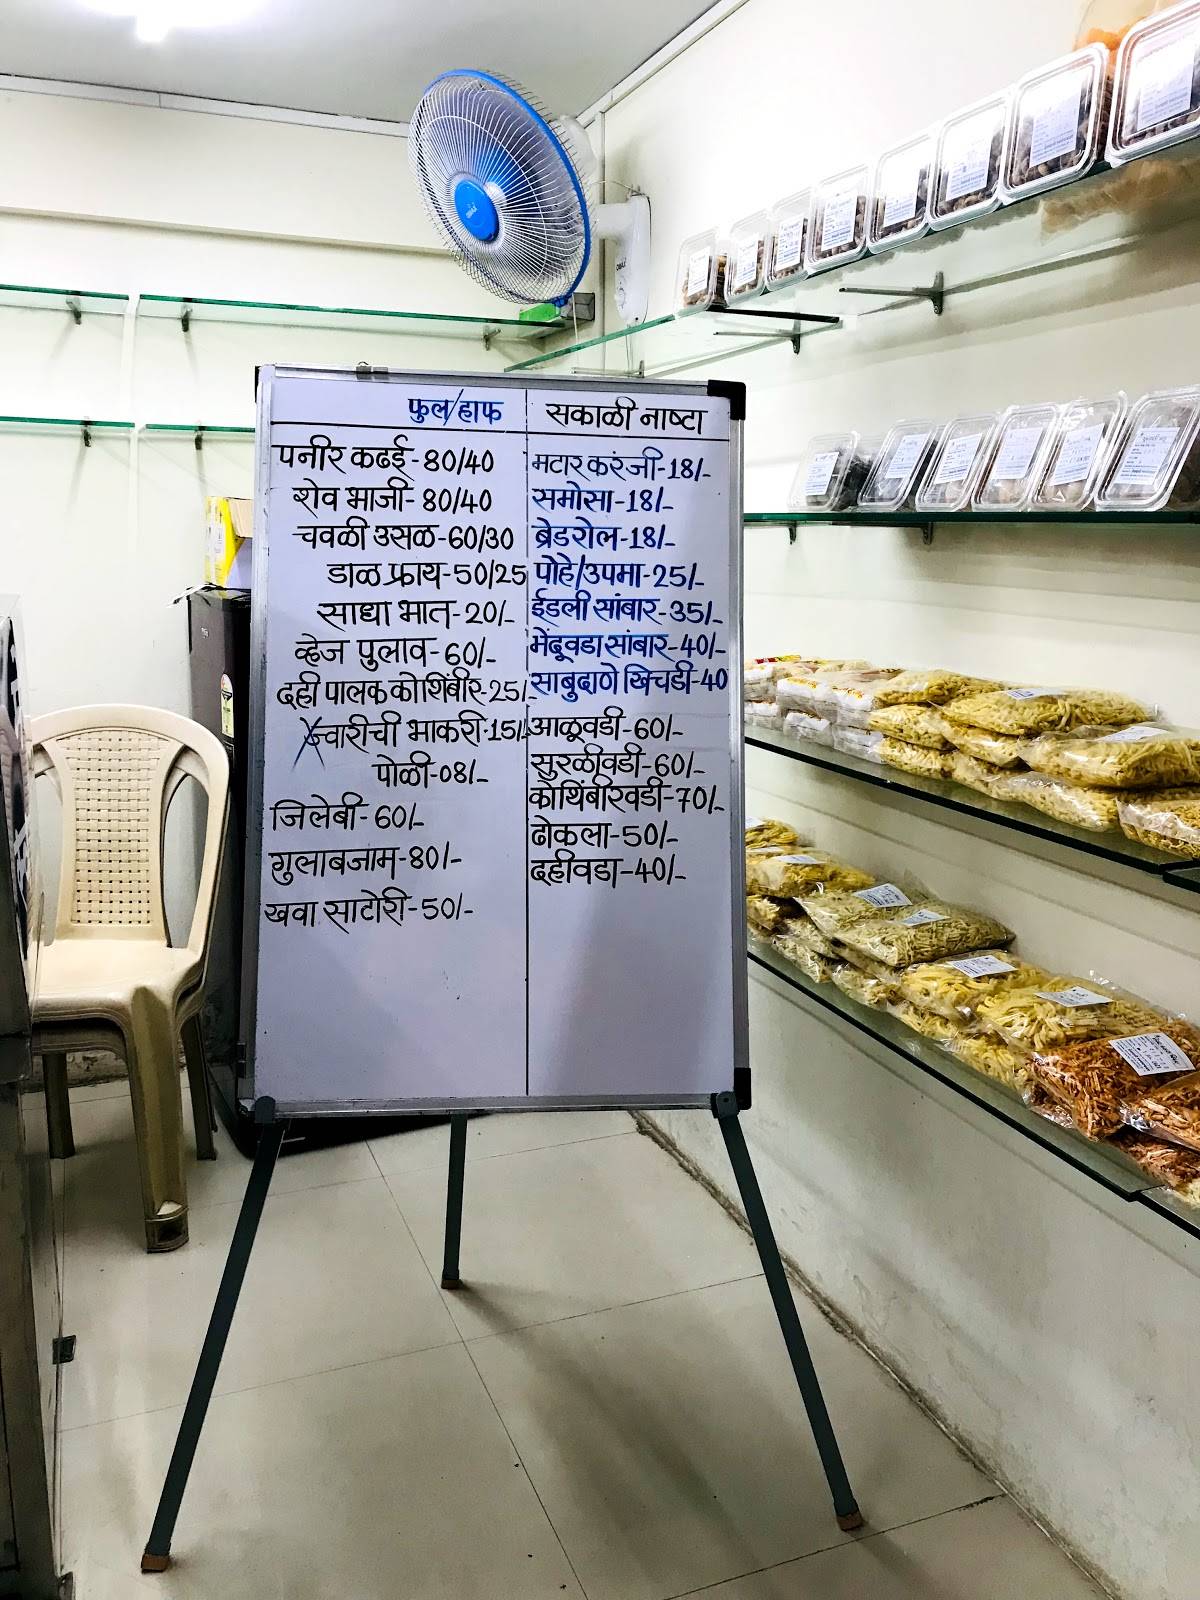 फुल/हाफ
पनीर कढई-80/40
शेव भाजी-80/40
चवळी उसळ-60/30
डाळ फ्राय-50/25
साधा भात-20/-
व्हेज पुलाव-60/-
दही पालक कोशिंबीर-25/-
ज्वारीची भाकरी-15/-
पोळी-08/-
जिलेबी-60/-
गुलाबजाम-80/-
खवा साटोरी-50/-
सकाळी नाष्टा
मटार करंजी-18/-
समोसा-18/-
ब्रेडरोल-18/-
पोहे/उपमा-25/-
ईडली सांबार-35/-
मेंदूवडा सांबार-40/-
साबुदाणे खिचडी-40
आळूवडी-60/-
सुरळीवडी-60/-
कोथिंबीरवडी-70/-
ढोकला-50/-
दहीवडा-40/-